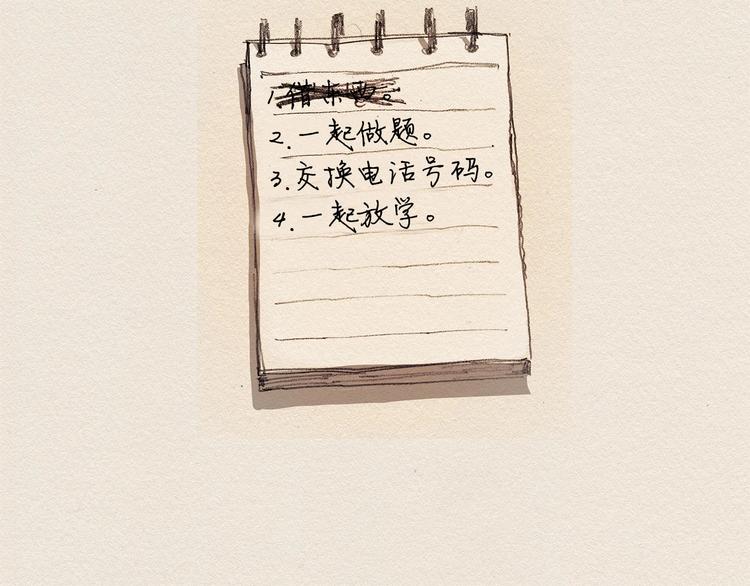 1借东西。
2.一起做题。
3.交换电话号码。
4.一起放学。